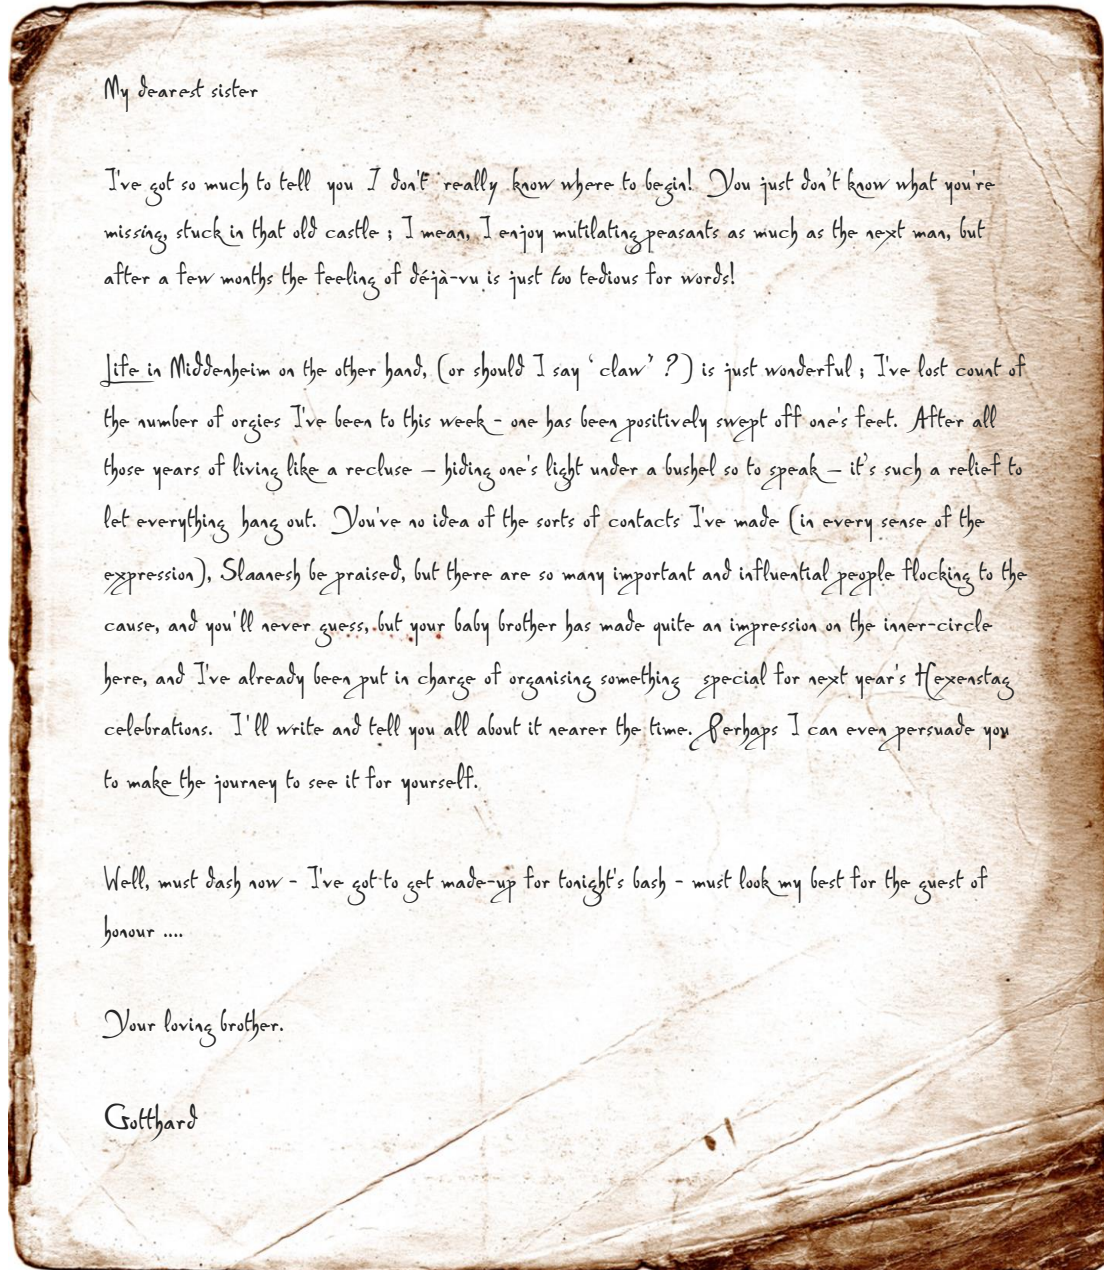 My dearest sister
I've got so much to tell you I don't really know where to begin! You just don't know what you're
missing, stuck in that old castle ; I mean, I enjoy mutilating peasants as much as the next man, but
after a few months the feeling of déjà-vu is just too tedious for words!
Life in Middenheim on the other hand, (or should I say 'claw' ?) is just wonderful ; I've lost count of
the number of orgies I've been to this week - one has been positively swept off one's feet. After all
those years of living like a recluse – hiding one's light under a bushel so to speak – it's such a relief to
let everything hang out. You've no idea of the sorts of contacts I've made (in every sense of the
expression), Slaanesh be praised, but there are so many important and influential people flocking to the
cause, and you'll never guess, but your baby brother has made quite an impression on the inner-circle
here, and I've already been put in charge of organising something special for next year's Hexenstag
celebrations. I'll write and tell you all about it nearer the time. Perhaps I can even persuade you
to make the journey to see it for yourself.
Well, must dash now - I've got to get made-up for tonight's bash - must look my best for the guest of
honour ....
Your loving brother.
Gotthard